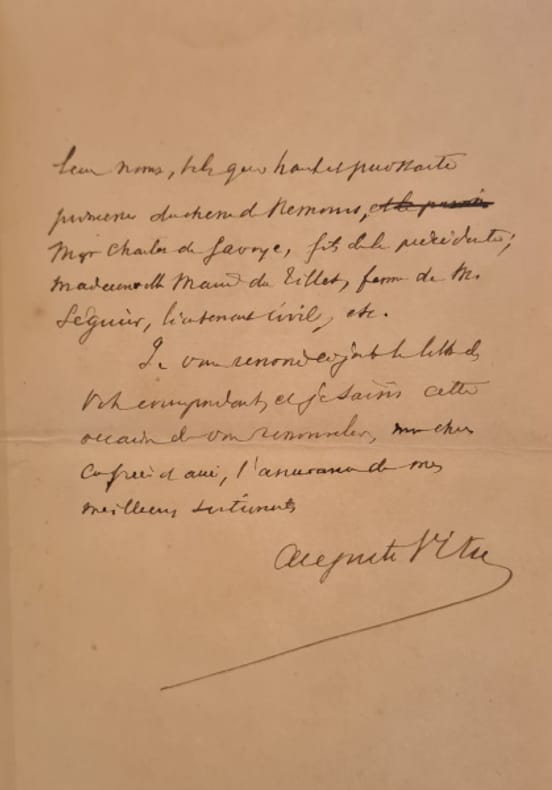 leur noms, tels que haute et puissante
princesse duchesse de Nemours, et la
Mgr Charles de Savoye, fils de la précédente ;
Mademoiselle Marie du Tillet, femme de M.
Séguier, lieutenant civil, etc.
Je vous renvoie ci-joint la lettre de
votre correspondant, et je saisis cette
occasion de vous renouveler, mon cher
confrère et ami, l'assurance de mes
meilleurs sentiments
Auguste Vitu